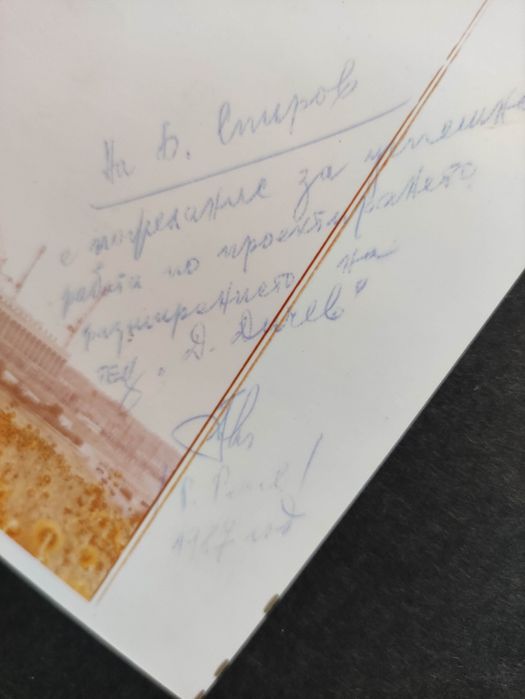 На Б. Спиров
с пожелание за успешна
работа по проектирането
разширението на
ТЕЦ „Д. Дичев"
1987 год